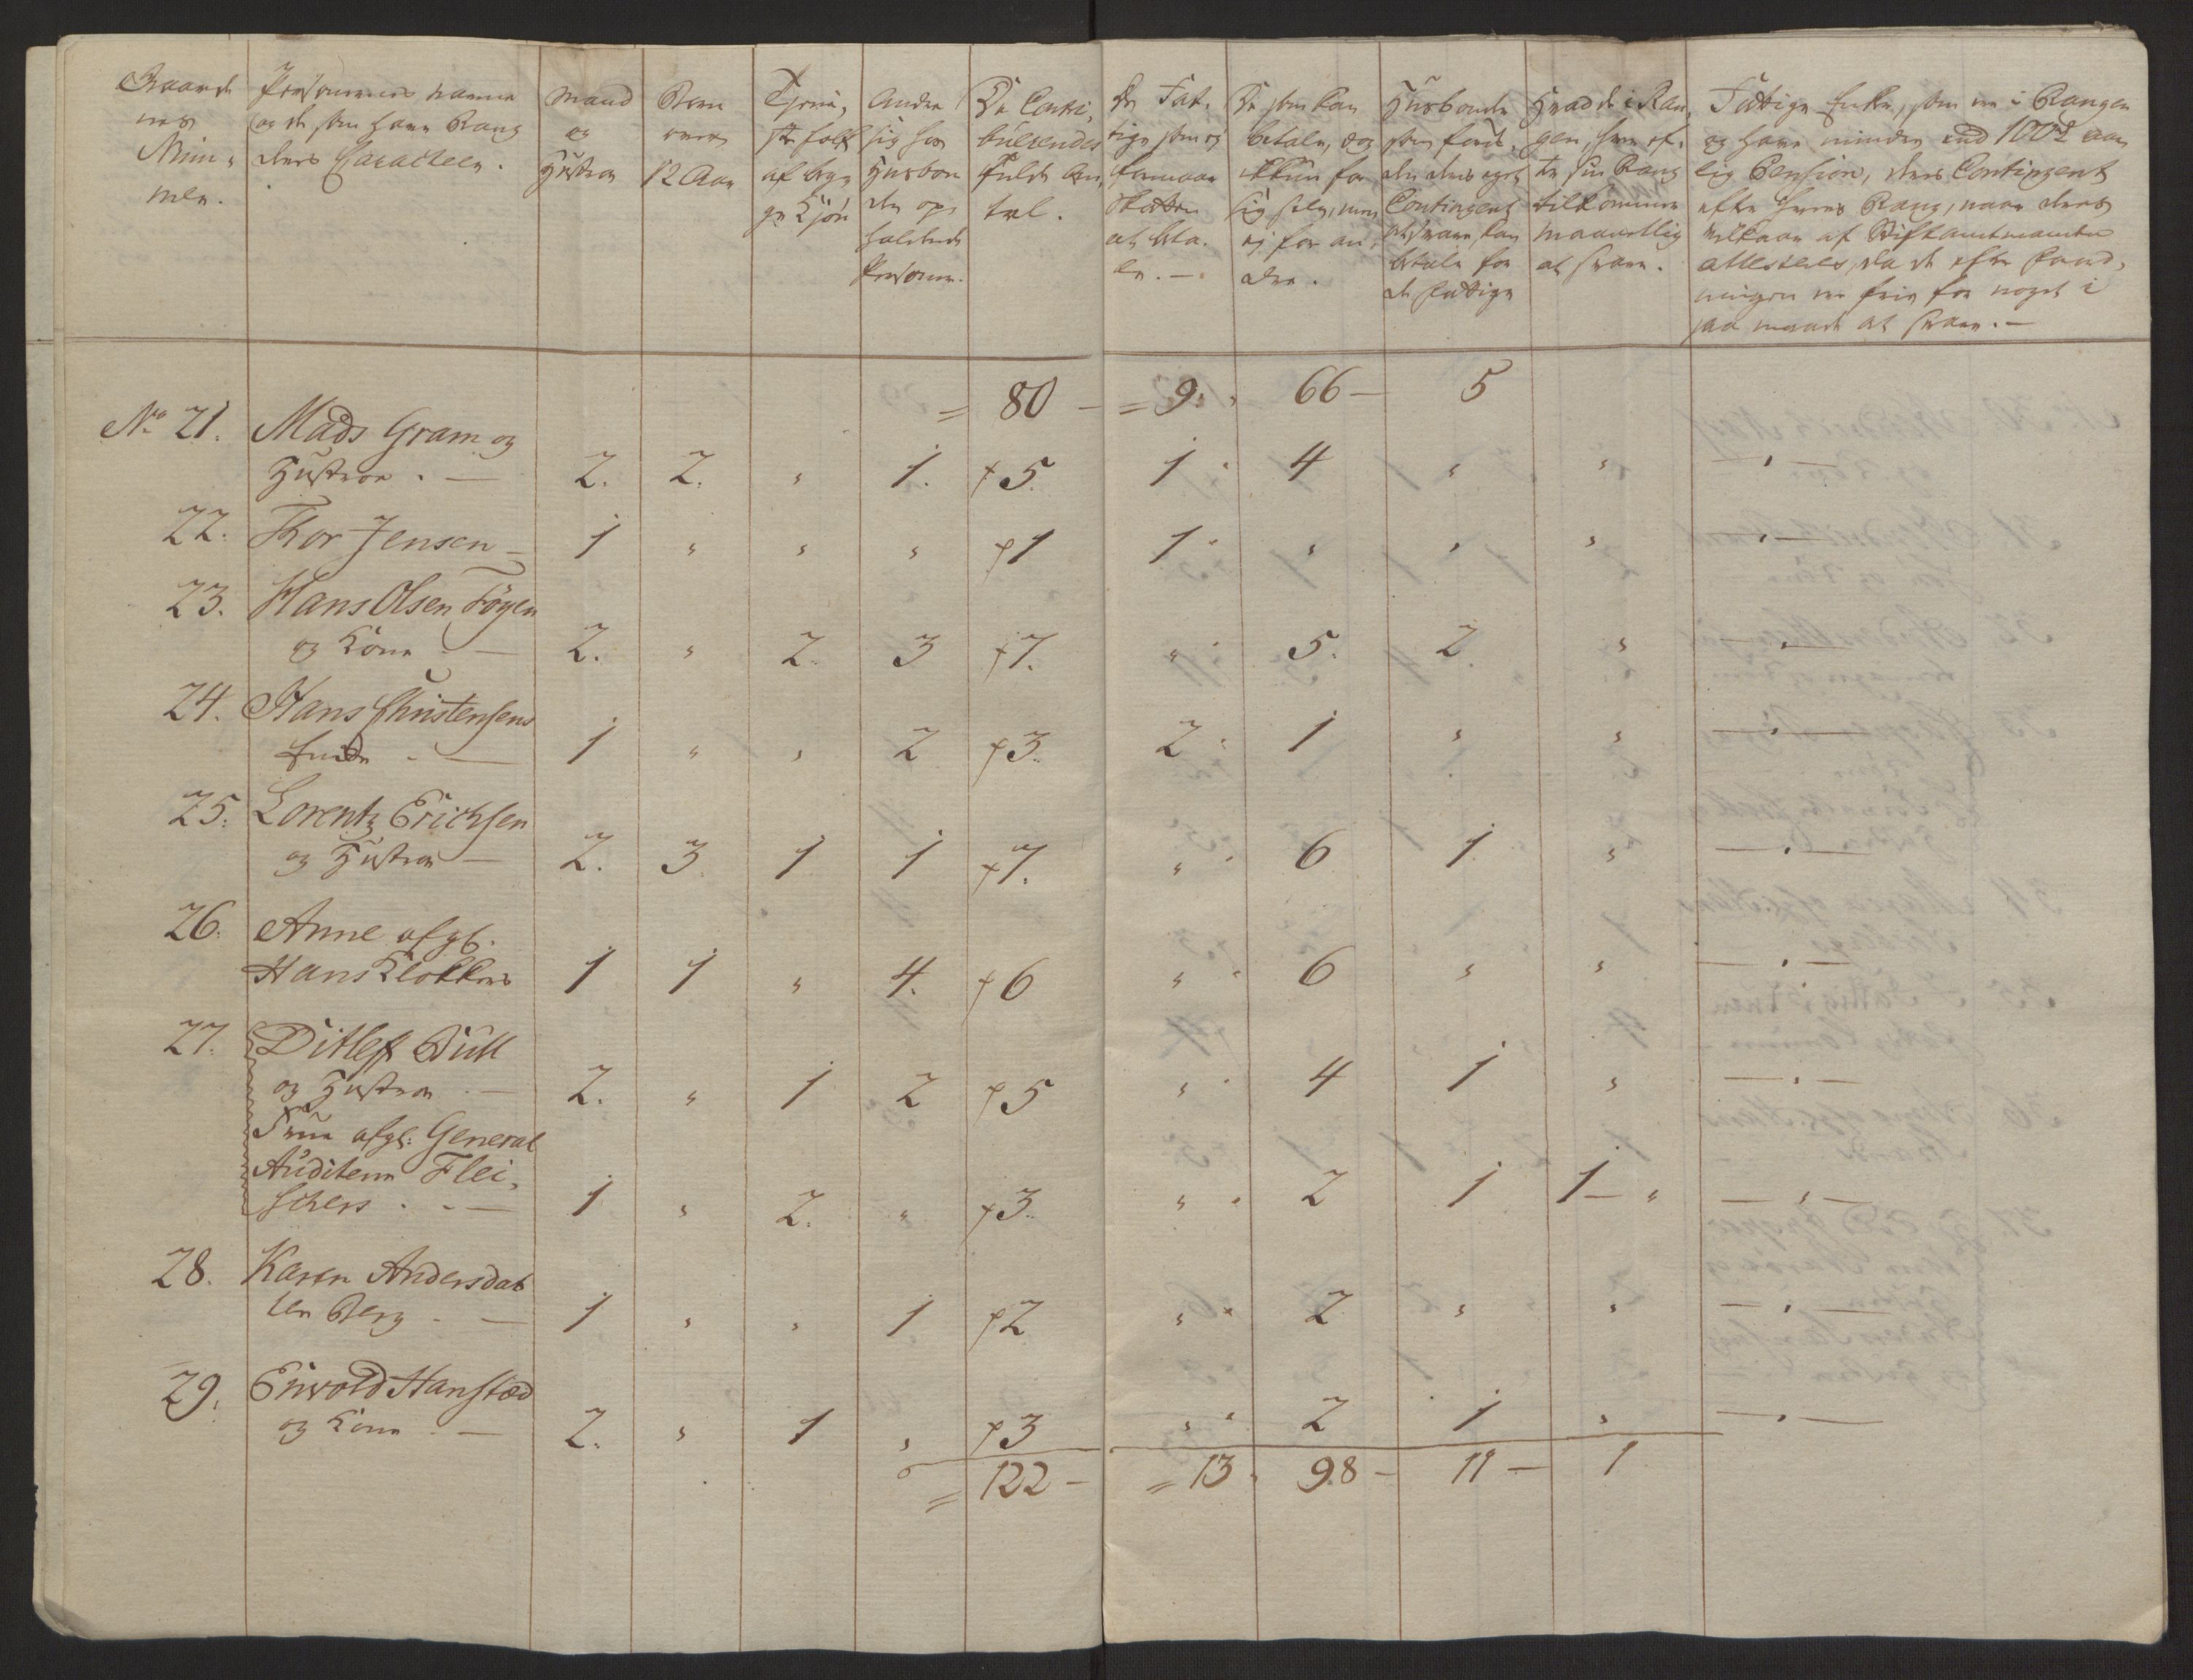 Gaarde
nes
Num-
mer.
Personernes Navne
og de som have Rang
deres Caracteer.
Mand
og
Hustroe
Børn
over
12 Aar
Tieni-
ste folk
af beg-
ge Kjøn
Andre
sig hos
Husbon
den op-
holdende
Personer.
De Contri-
buerendes
fulde An-
tal.
De Fat-
tige som ej
formaar
Skatten
at beta-
le. —
De som kan
betale, dog
ikkun for
sig selv, men
ej for an-
dre.
Husbonde
som foruden
deres eget
Contingent
at svare, kan
betale for
de fattige
Hvad de i Ran-
gen, have ef-
ter sin Rang
tilkommer
maanetlig
at svare.
Fattige Enker, som ere i Rangen
og have mindre end 100 rd aar
lig Pension, deres Contingent
efter Rang, naar deres
Vilkaar af Stiftamtmanden
attesteres, da de efter
ere frie for noget i
saa maade at svare. —
= 80 — = 9. 66 — 5
No 21. Mads Gram og
Hustroe . — 2. 2. " 1. 5. 1 4 " " — " —
22. Thor Jensen — 1 " " " 1 1 " " " — " —
23. Hans Olsen Føyen
og Kone — 2. " 2. 3 7. " 5. 2 " — " —
24. Hans Christensens
Enke . — 1 " " 2 3. 2 1 " " — " —
25. Lorentz Erichsen
og Hustroe — 2. 3. 1 1 7. " 6 1 " — " —
26. Anne afgl.
Hans Klokkers 1 1 " 4. 6 " 6 " " — " —
27. Ditlef Bull
og Hustroe . — 2. " 1 2 5 " 4 1 " — " —
Frue afgl: General
Auditeur Flei-
schers . . — 1 " 2. " 3. " 2 1 1 — " — " —
28. Karen Andersdat
ter Berg . — 1 " " 1 2 " 2 " " — " —
29. Envold Hanstæd
og Kone . — 2. " 1 " 3 " 2 1 " — " —
= 122 — = 13 98 — 11 — 1